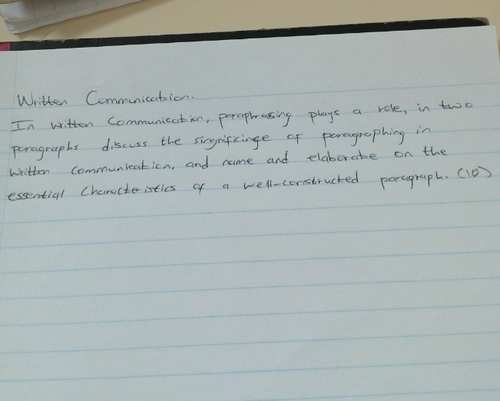 Written Communication.
In written Communication, paraphrasing plays a role, in two
paragraphs discuss the singnificinge of paragraphing in
written communication, and name and elaborate on the
essential characteristics of a well-constructed paragraph. (10)